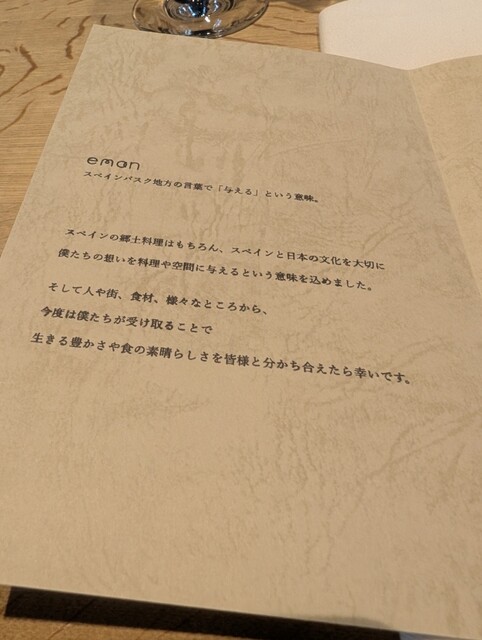 eman
スペインバスク地方の言葉で「与える」という意味。
スペインの郷土料理はもちろん、スペインと日本の文化を大切に
僕たちの想いを料理や空間に与えるという意味を込めました。
そして人や街、食材、様々なところから、
今度は僕たちが受け取ることで
生きる豊かさや食の素晴らしさを皆様と分かち合えたら幸いです。